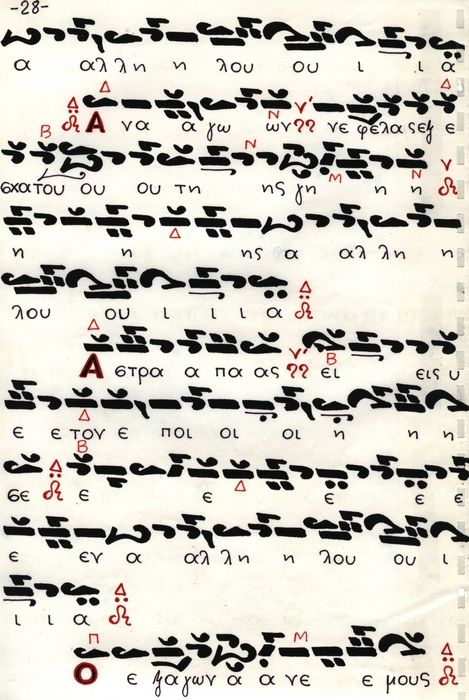 -28-
α αλ λη η λου ου ι ι α
Α να α γω ων νε φε λας εξ ε
σχα του ου ου τη ης γη η η
η η ης α αλ λη η
λου ου ι ι ι α
Α στρα α πα ας ει εις υ
ε ε τον ε ποι οι οι η η
σε ε ε ε ε ε
ε εν α αλ λη η λου ου ι
ι ι α
Ο ε ξα γων α α νε ε μους